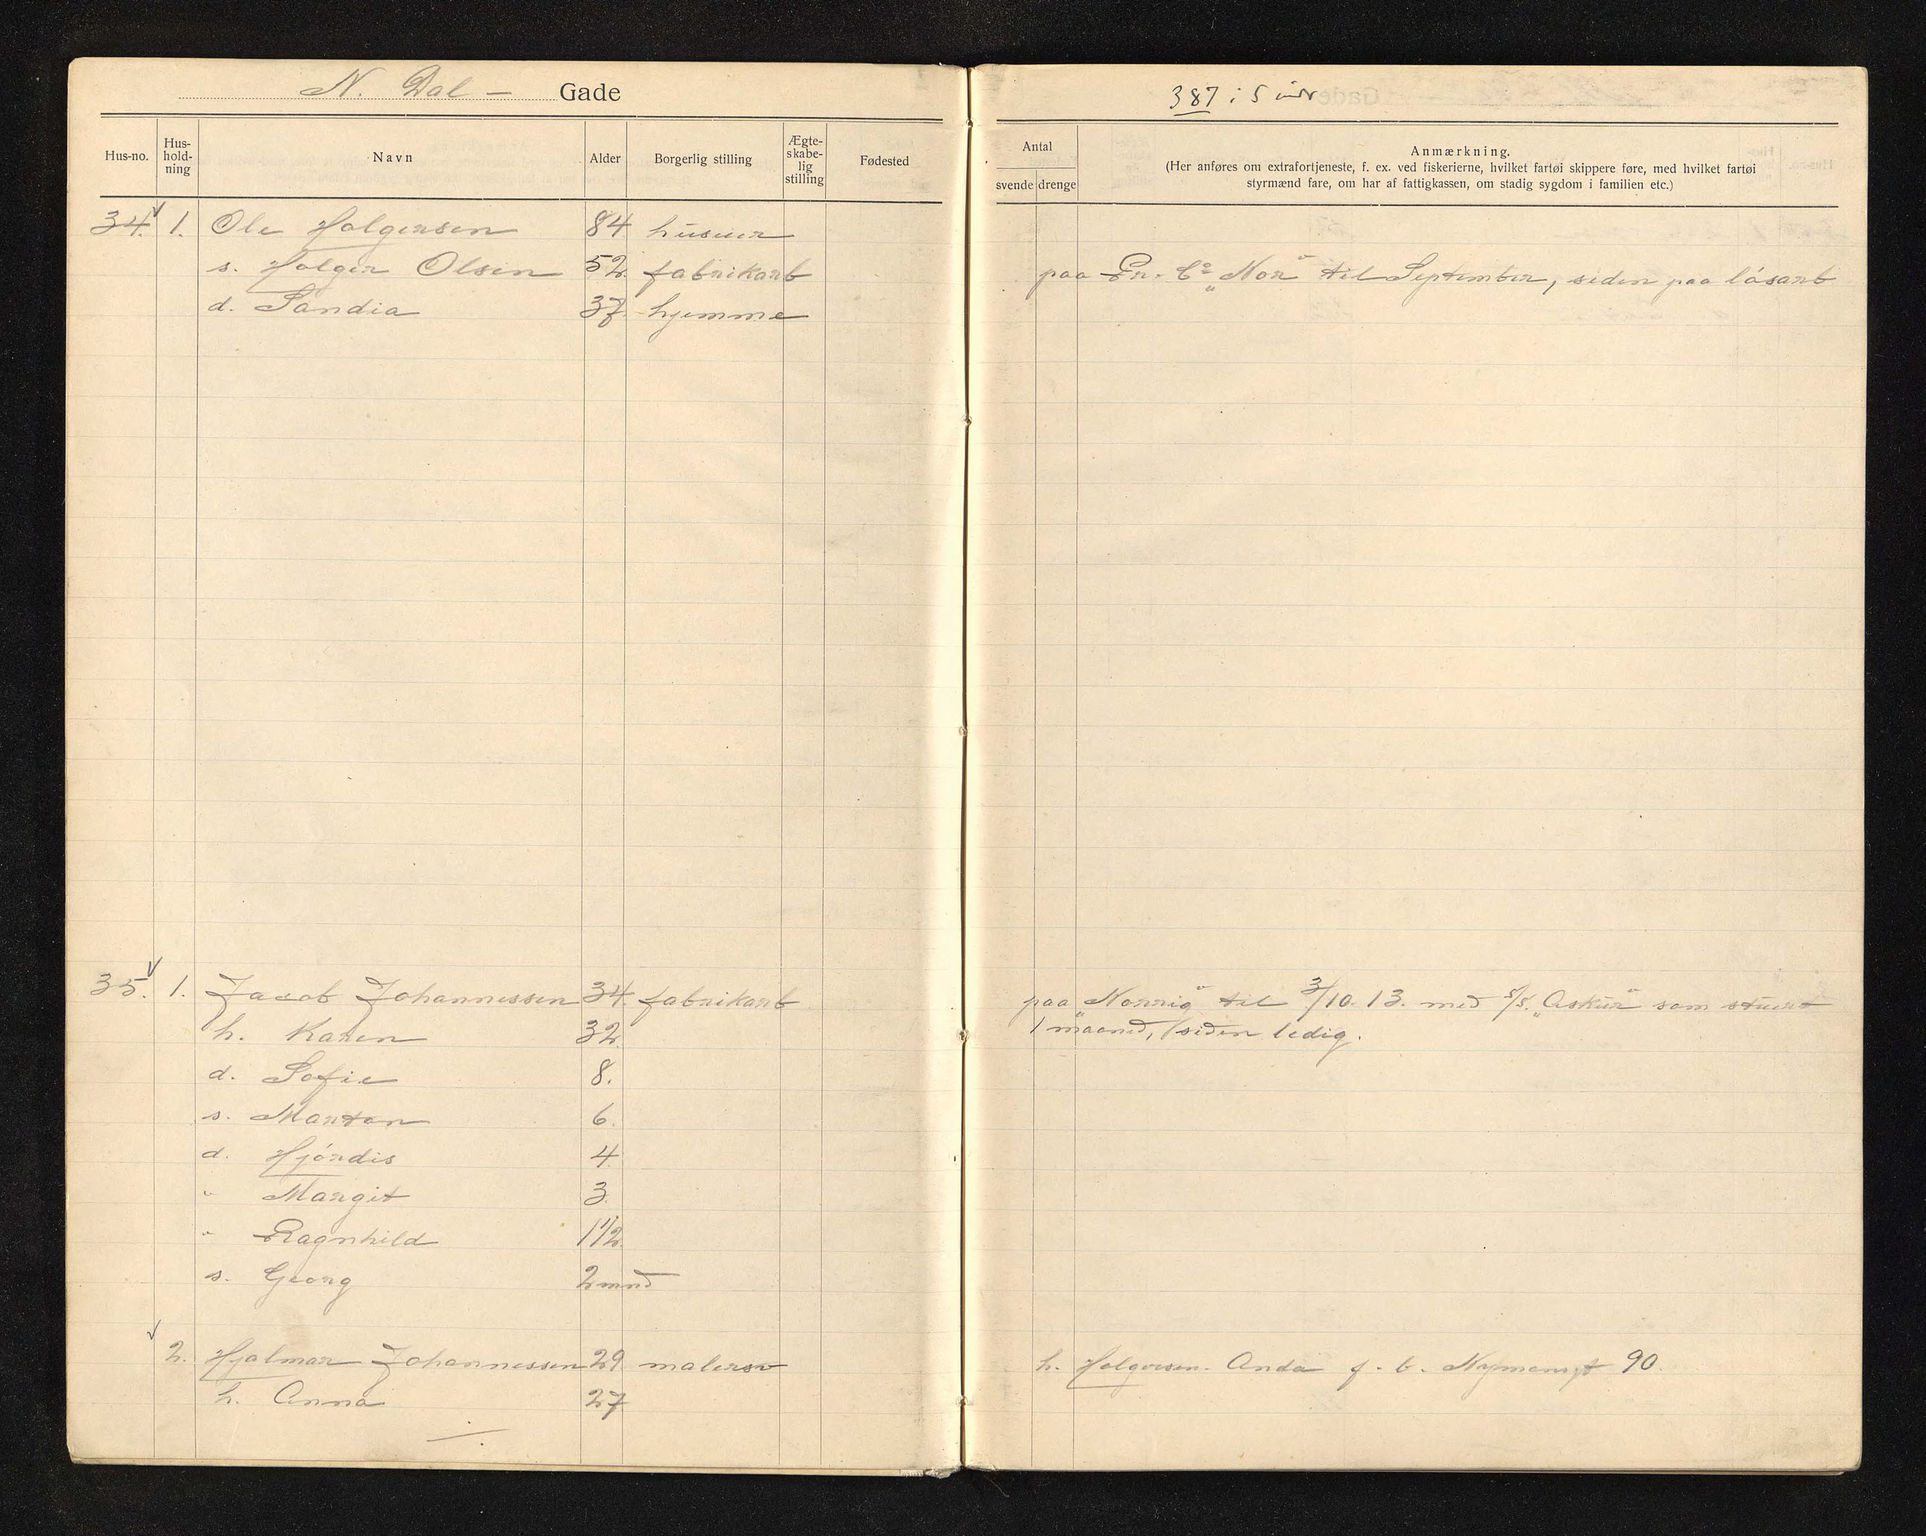 N. Dal - Gade
Hus-no. Hus-hold-ning Navn Alder Borgerlig stilling Ægte-skabe-lig stilling Fødested
34. 1. Ole Holgersen 84 huseier
s. Holger Olsen 52 fabrikarb
d. Sandia 37. hjemme
35. 1. Jacob Johannessen 34. fabrikarb
h. Karen 32.
d. Sofie 8.
s. Marten 6.
d. Hjördis 4.
" Margit 3.
" Ragnhild 1 1/2.
s. Georg 2 mnd
2. Hjalmar Johannessen 29 malersv
h. Anna 27
387 i 5
Antal
svende drenge
Anmærkning.
(Her anføres om extrafortjeneste, f. ex. ved fiskerierne, hvilket fartøi skippere føre, med hvilket fartøi
styrmænd fare, om har af fattigkassen, om stadig sygdom i familien etc.)
paa Pr. Co „Nor" til September, siden paa lösarb
paa „Norrig" til 3/10. 13. med s/s. „Askur" som stuert
1 maaned, siden ledig.
h. Holgersen. Anda f. b. 90.